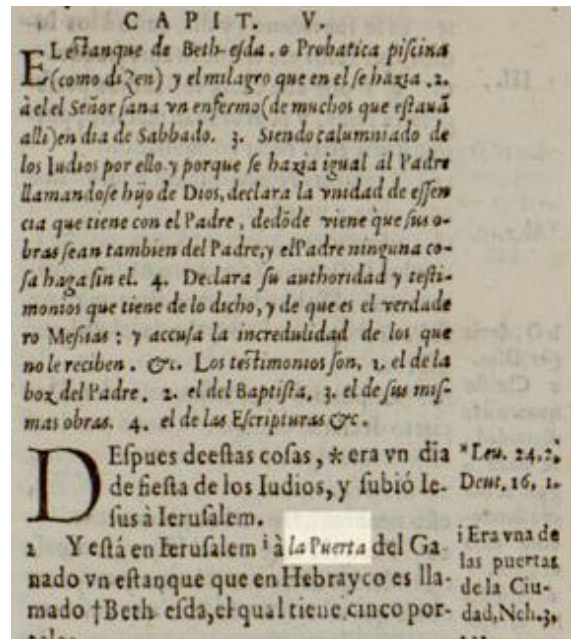 CAPIT. V.
ELestanque de Beth-esda. o Probatica piscina
(como dizen) y el milagro que en el se hazia. 2.
à el el Señor sana vn enfermo (de muchos que estauã
alli) en dia de Sabbado. 3. Siendo calumniado de
los Iudios por ello y porque se hazia igual al Padre
llamandose hijo de Dios, declara la vnidad de essen
cia que tiene con el Padre, dedõde viene que sus o-
bras sean tambien del Padre, y el Padre ninguna co-
sa haga sin el. 4. Declara su authoridad y testi-
monios que tiene de lo dicho, y de que es el verdade
ro Messias: y accusa la incredulidad de los que
no le reciben. &c. Los testimonios son, 1. el de la
boz del Padre. 2. el del Baptista, 3. el de sus mis-
mas obras. 4. el de las Escripturas &c.
DEspues deestas cosas, * era vn dia
de fiesta de los Iudios, y subió Ie-
sus à Ierusalem.
2 Y está en Ierusalem i à la Puerta del Ga-
nado vn estanque que en Hebrayco es lla-
mado †Beth-esda, el qual tiene cinco por-
*Leu. 24, 2.
Deut, 16, 1.
i Era vna de
las puertas
de la Ciu-
dad, Neh. 3,